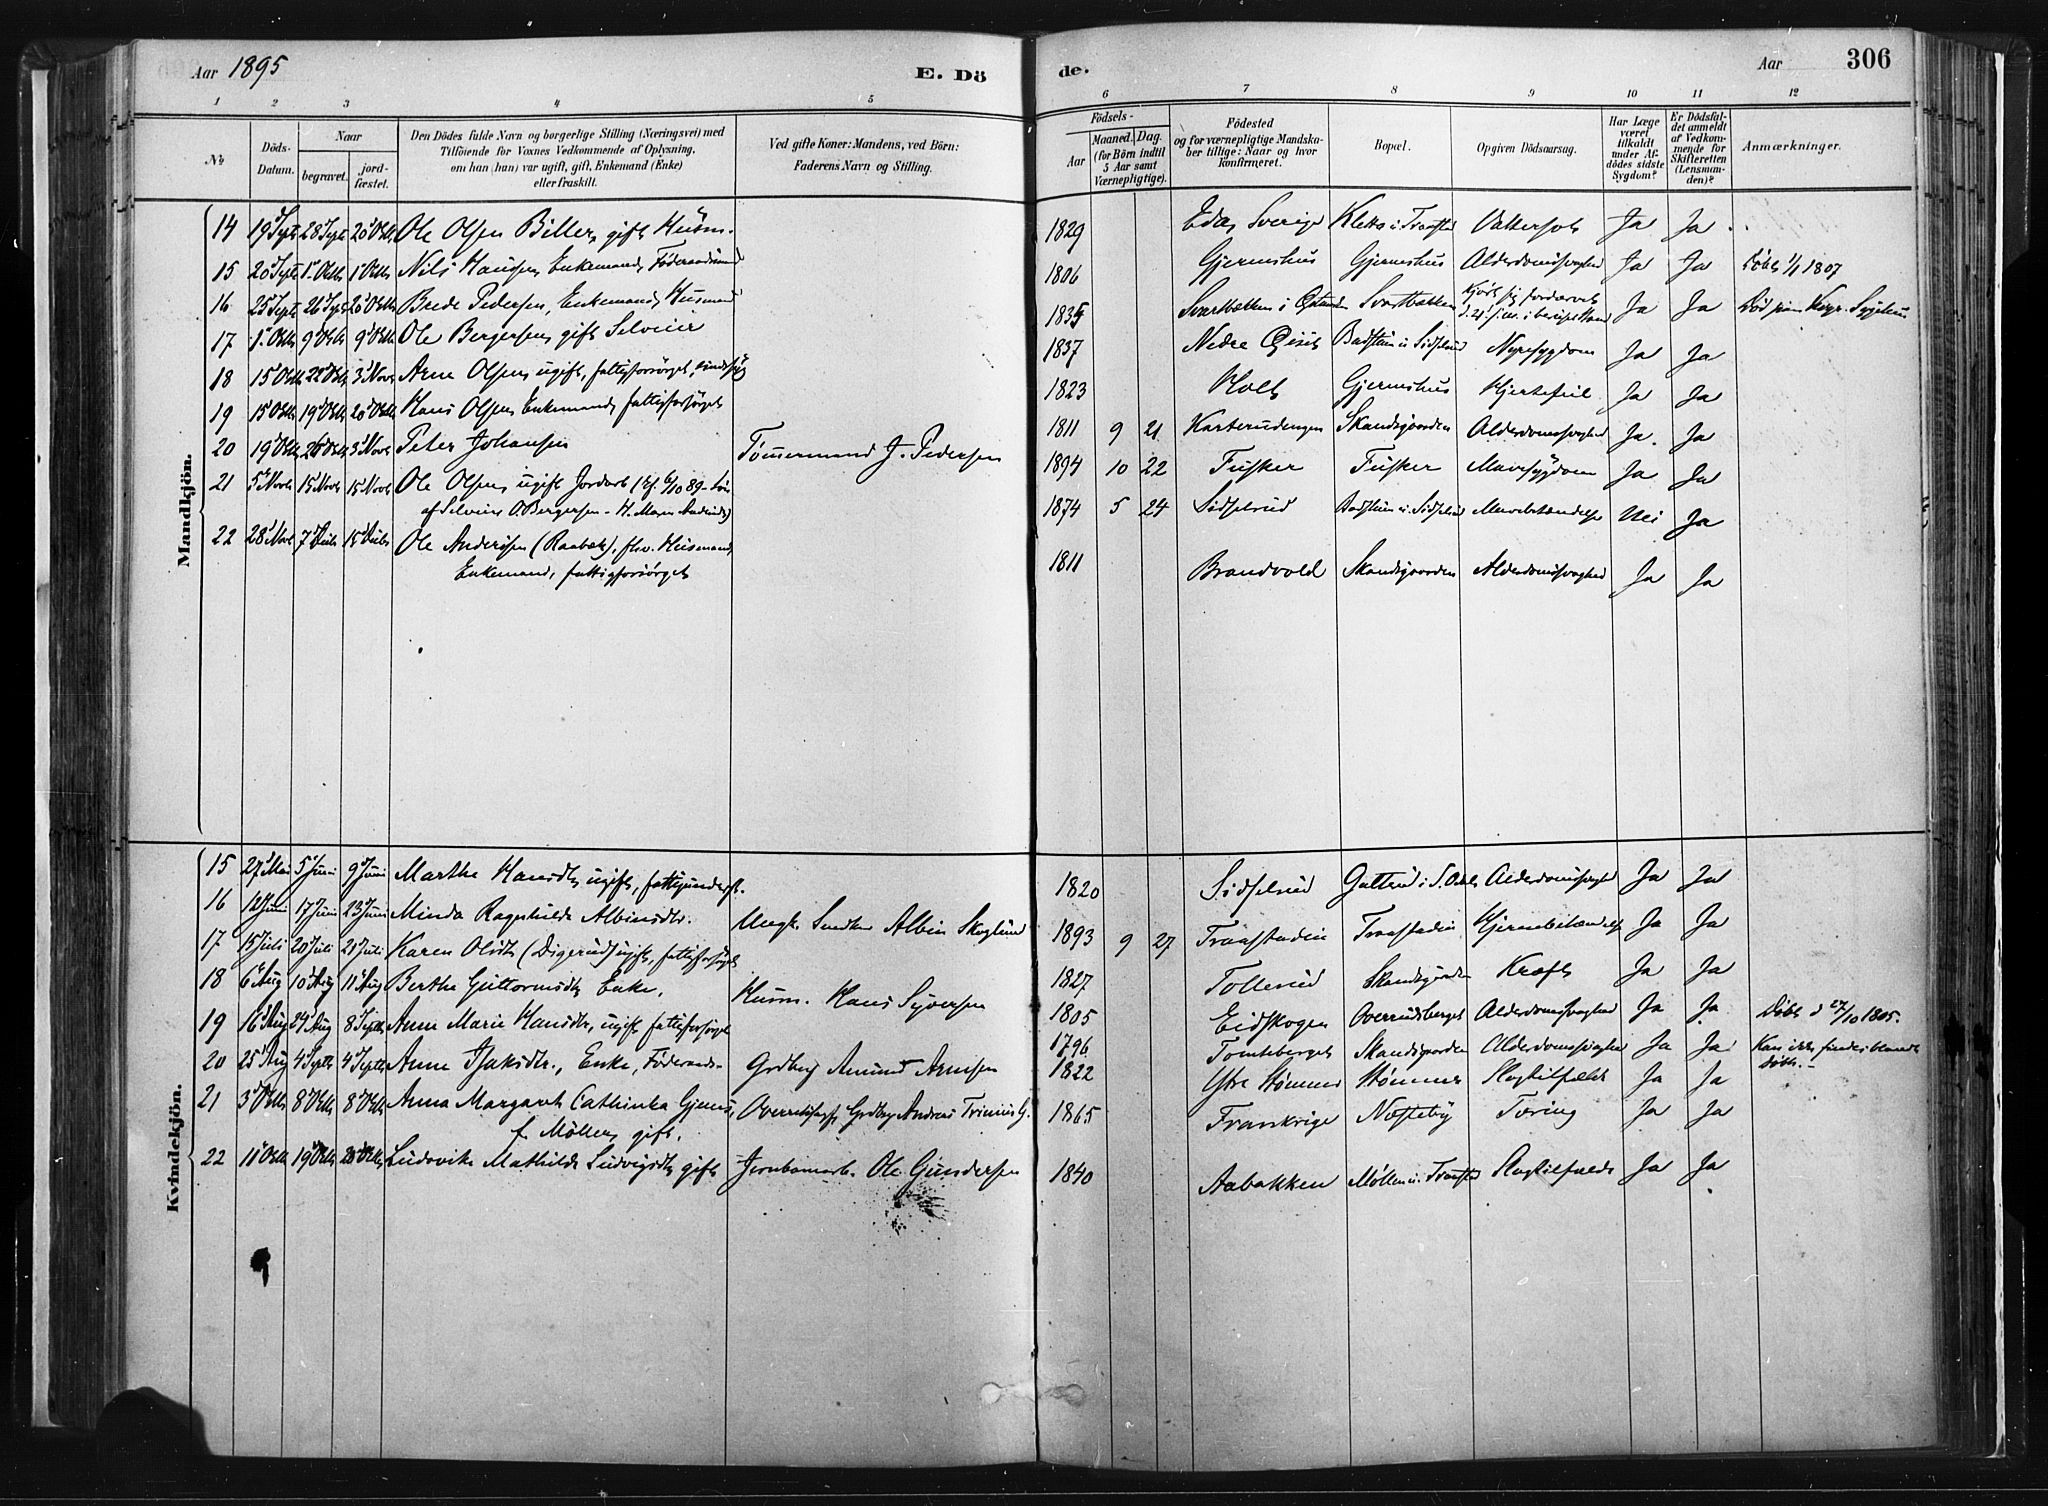 Aar 1895 E. Dö de. Aar 306
1 2 3 4 5 6 7 8 9 10 11 12
№ Döds-Datum. Naar begravet. jord-fæstet. Den Dödes fulde Navn og borgerlige Stilling (Næringsvei) med Tilföiende for Voxnes Vedkommende af Oplysning, om han (hun) var ugift, gift, Enkemand (Enke) eller fraskilt. Ved gifte Koner: Mandens, ved Börn: Faderens Navn og Stilling. Födsels- Aar Maaned. Dag. (for Börn indtil 5 Aar samt Værnepligtige). Födested og for værnepligtige Mandskaber tillige: Naar og hvor konfirmeret. Bopæl. Opgiven Dödsaarsag. Har Læge været tilkaldt under Afdödes sidste Sygdom? Er Dödsfaldet anmeldt af Vedkommende for Skifteretten (Lensmanden)? Anmærkninger.
Mandkjön.
14 19 Sept 28 Sept 20 Oktb Ole Olsen Biller, gift Husm. 1829 Eda, Sverige Kletto i Traastad Vattersot Ja Ja
15 20 Septb 1 Oktb 1 Oktb Nils Hansen, Enkemand, Föderaadsmand 1806 Gjermshus Gjermshus Alderdomssvaghed Ja Ja Döbt 1/1 1807
16 25 Septb 26 Septb 20 Oktb Brede Pedersen, Enkemand, Husmand 1835 Svartbækken Svartbækken Ja Ja Död paa Kongsv. Sygehus
17 1 Oktb 9 Oktb 9 Oktb Ole Bergersen, gift Selveier 1837 Nedre Badstuen u. Sidselrud Nyresygdom Ja Ja
18 15 Oktb 22 Oktb 3 Novb Arne Olsen, ugift, fattigforsörget, sindssyg 1823 Holt Gjermshus Hjertefeil Ja Ja
19 15 Oktb 19 Oktb 20 Oktb Hans Olsen, Enkemand, fattigforsörget 1811 9 21 Karterudengen Skandsgaarden Alderdomssvaghed Ja. Ja
20 19 Oktb 26 Oktb 3 Novb Peter Johansen Tömmermand J. Pedersen 1894 10 22 Fusker Fusker Mavesygdom Ja Ja
21 5 Novb 15 Novb 15 Novb Ole Olsen, ugift Jordarb. (kf. 6/10 89 - Sön 1874 5 24 Sidselrud Badstuen u. Sidselrud Mavebetændelse Nei Ja
af Selveier O. Bergersen - H. Maren
22 28 Novb 7 Decb 15 Decb Ole Andersen (Raabæk), fhv. Husmand, 1811 Brandvold Skandsgaarden Alderdomssvaghed Ja Ja
Enkemand, fattigforsörget
Kvindekjön.
15 27 Mai 5 Juni 9 Juni Marthe Hansdtr, ugift, fattigunderst. 1820 Sidselrud Gulterud i S. Odal Alderdomssvaghed Ja Ja
16 12 Juni 17 Juni 23 Juni Minda Ragnhilda Albinsdtr. Ungk. Snedker Albin Skoglund 1893 9 27 Traastadeie Traastadeie Hjernebetændelse Ja Ja
17 15 Juli 20 Juli 21 Juli Karen Olsdtr (Digerud) ugift, fattigforsörget 1827 Tollerud Skandsgaarden Kræft Ja Ja
18 6 Aug 10 Aug 11 Aug Berthe Guttormsdtr, Enke. Husm. Hans Syversen 1805 Eidskogen Overrudsberget Alderdomssvaghed Ja Ja Döbt d 27/10 1805.
19 16 Aug 24 Aug 8 Septb Anne Marie Hansdtr, ugift fattigforsörget 1796 Tomteberget Skandsgaarden Alderdomssvaghed Ja Ja Kan ikke findes blandt döbte.-
20 25 Aug 4 Septb 4 Septb Anne Isaksdtr., Enke, Föderaads- Grdbrg Amund Arnesen 1822 Ystre Stömner Stömner Slagtilfælde Ja Ja
21 3 Oktb 8 Oktb 8 Oktb Anna Margareth Cathinka Gjems, Overretssagf. Grdbrg Andreas Trinius G. 1865 Frankrige Næsteby Tæring Ja Ja
f. Möller, gift.
22 11 Oktb 19 Oktb 20 Oktb Ludovike Mathilde Ludvigsdtr, gift Jernbanearb. Ole Gundersen 1840 Aabakken Möllen u. Traastad Slagtilfælde Ja Ja